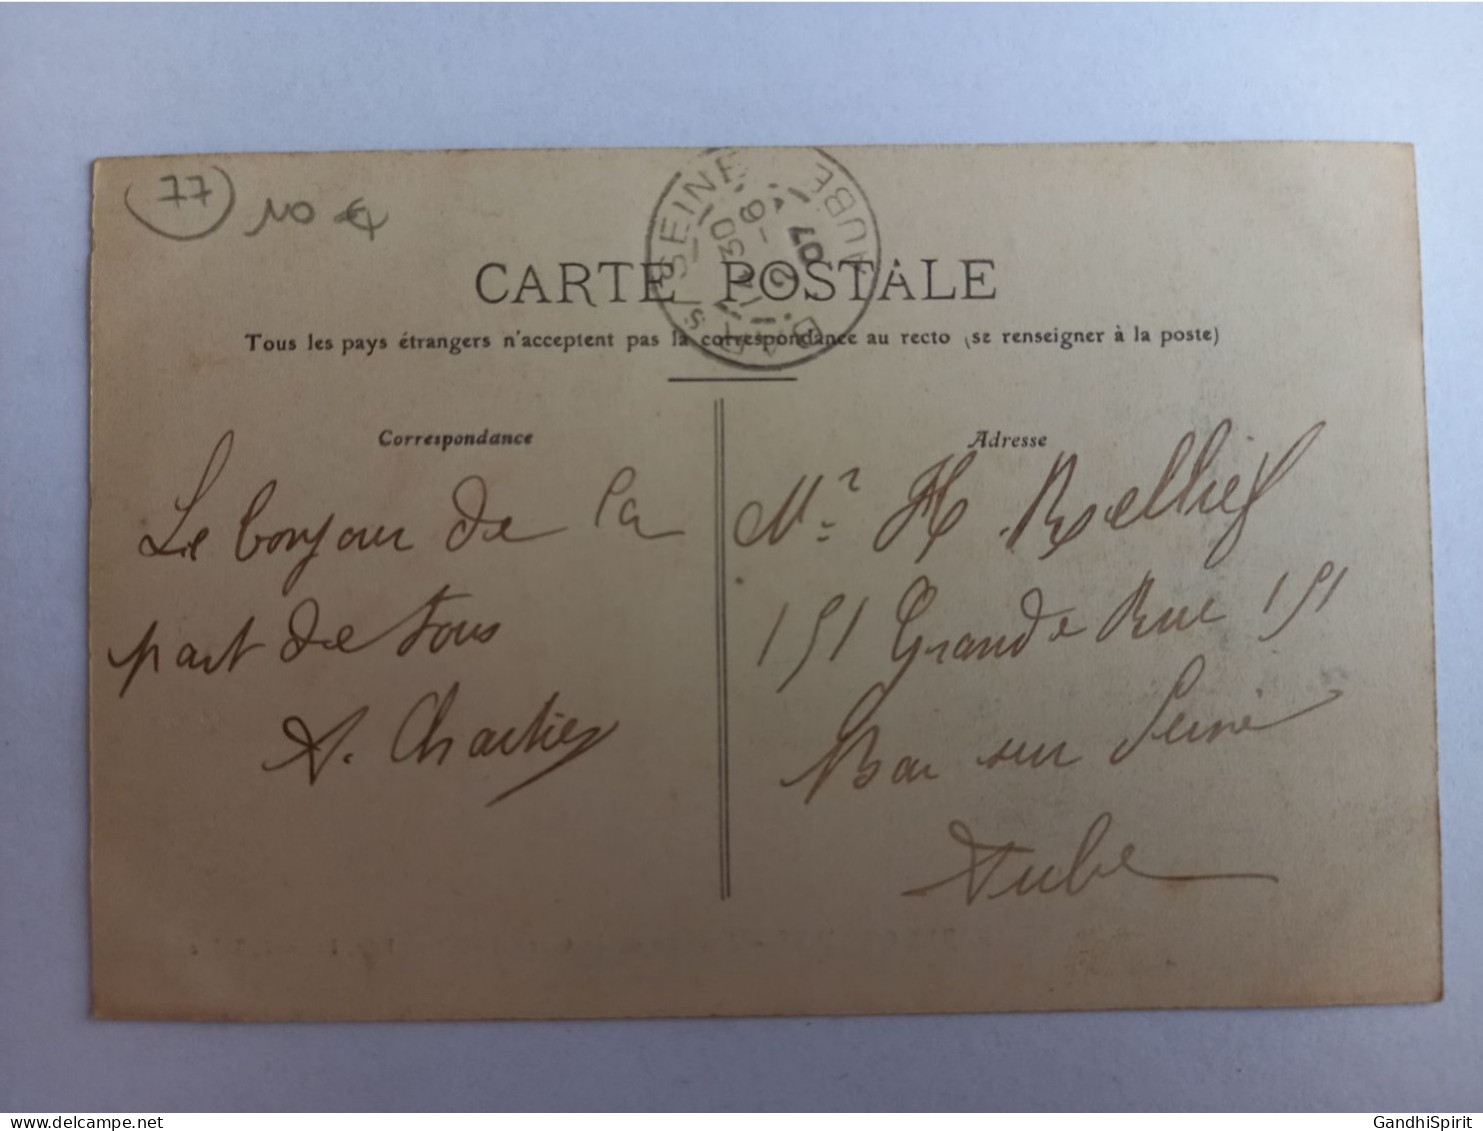 77
10 €
BAR-S-SEINE
AUBE
11 30
6 - 5
07
CARTE POSTALE
Tous les pays étrangers n'acceptent pas la correspondance au recto (se renseigner à la poste)
Correspondance
Le bonjour de la
part de tous
A. Chartier
Adresse
Mr H.
151 Grande Rue 151
Bar sur Seine
Aube
GandhiSpirit